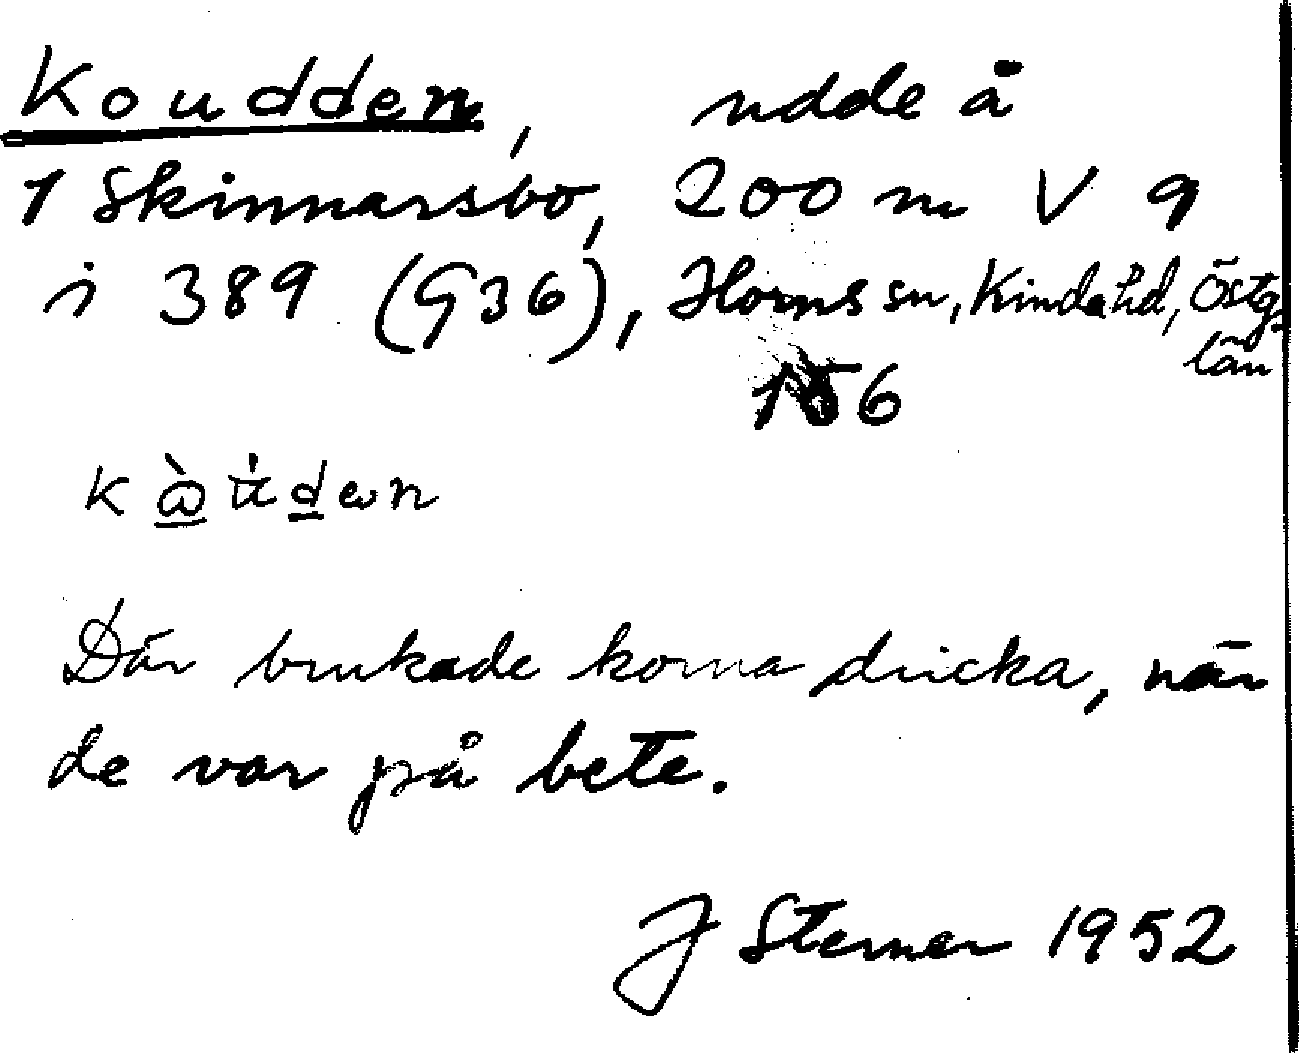 Koudden, udde å
1 Skinnarsbo, 200 m V 9
i 389 (G36), Horns sn, Kinda hd, Östg.
län
156
Där brukade korna dricka, när
de var på bete.
J Sterner 1952